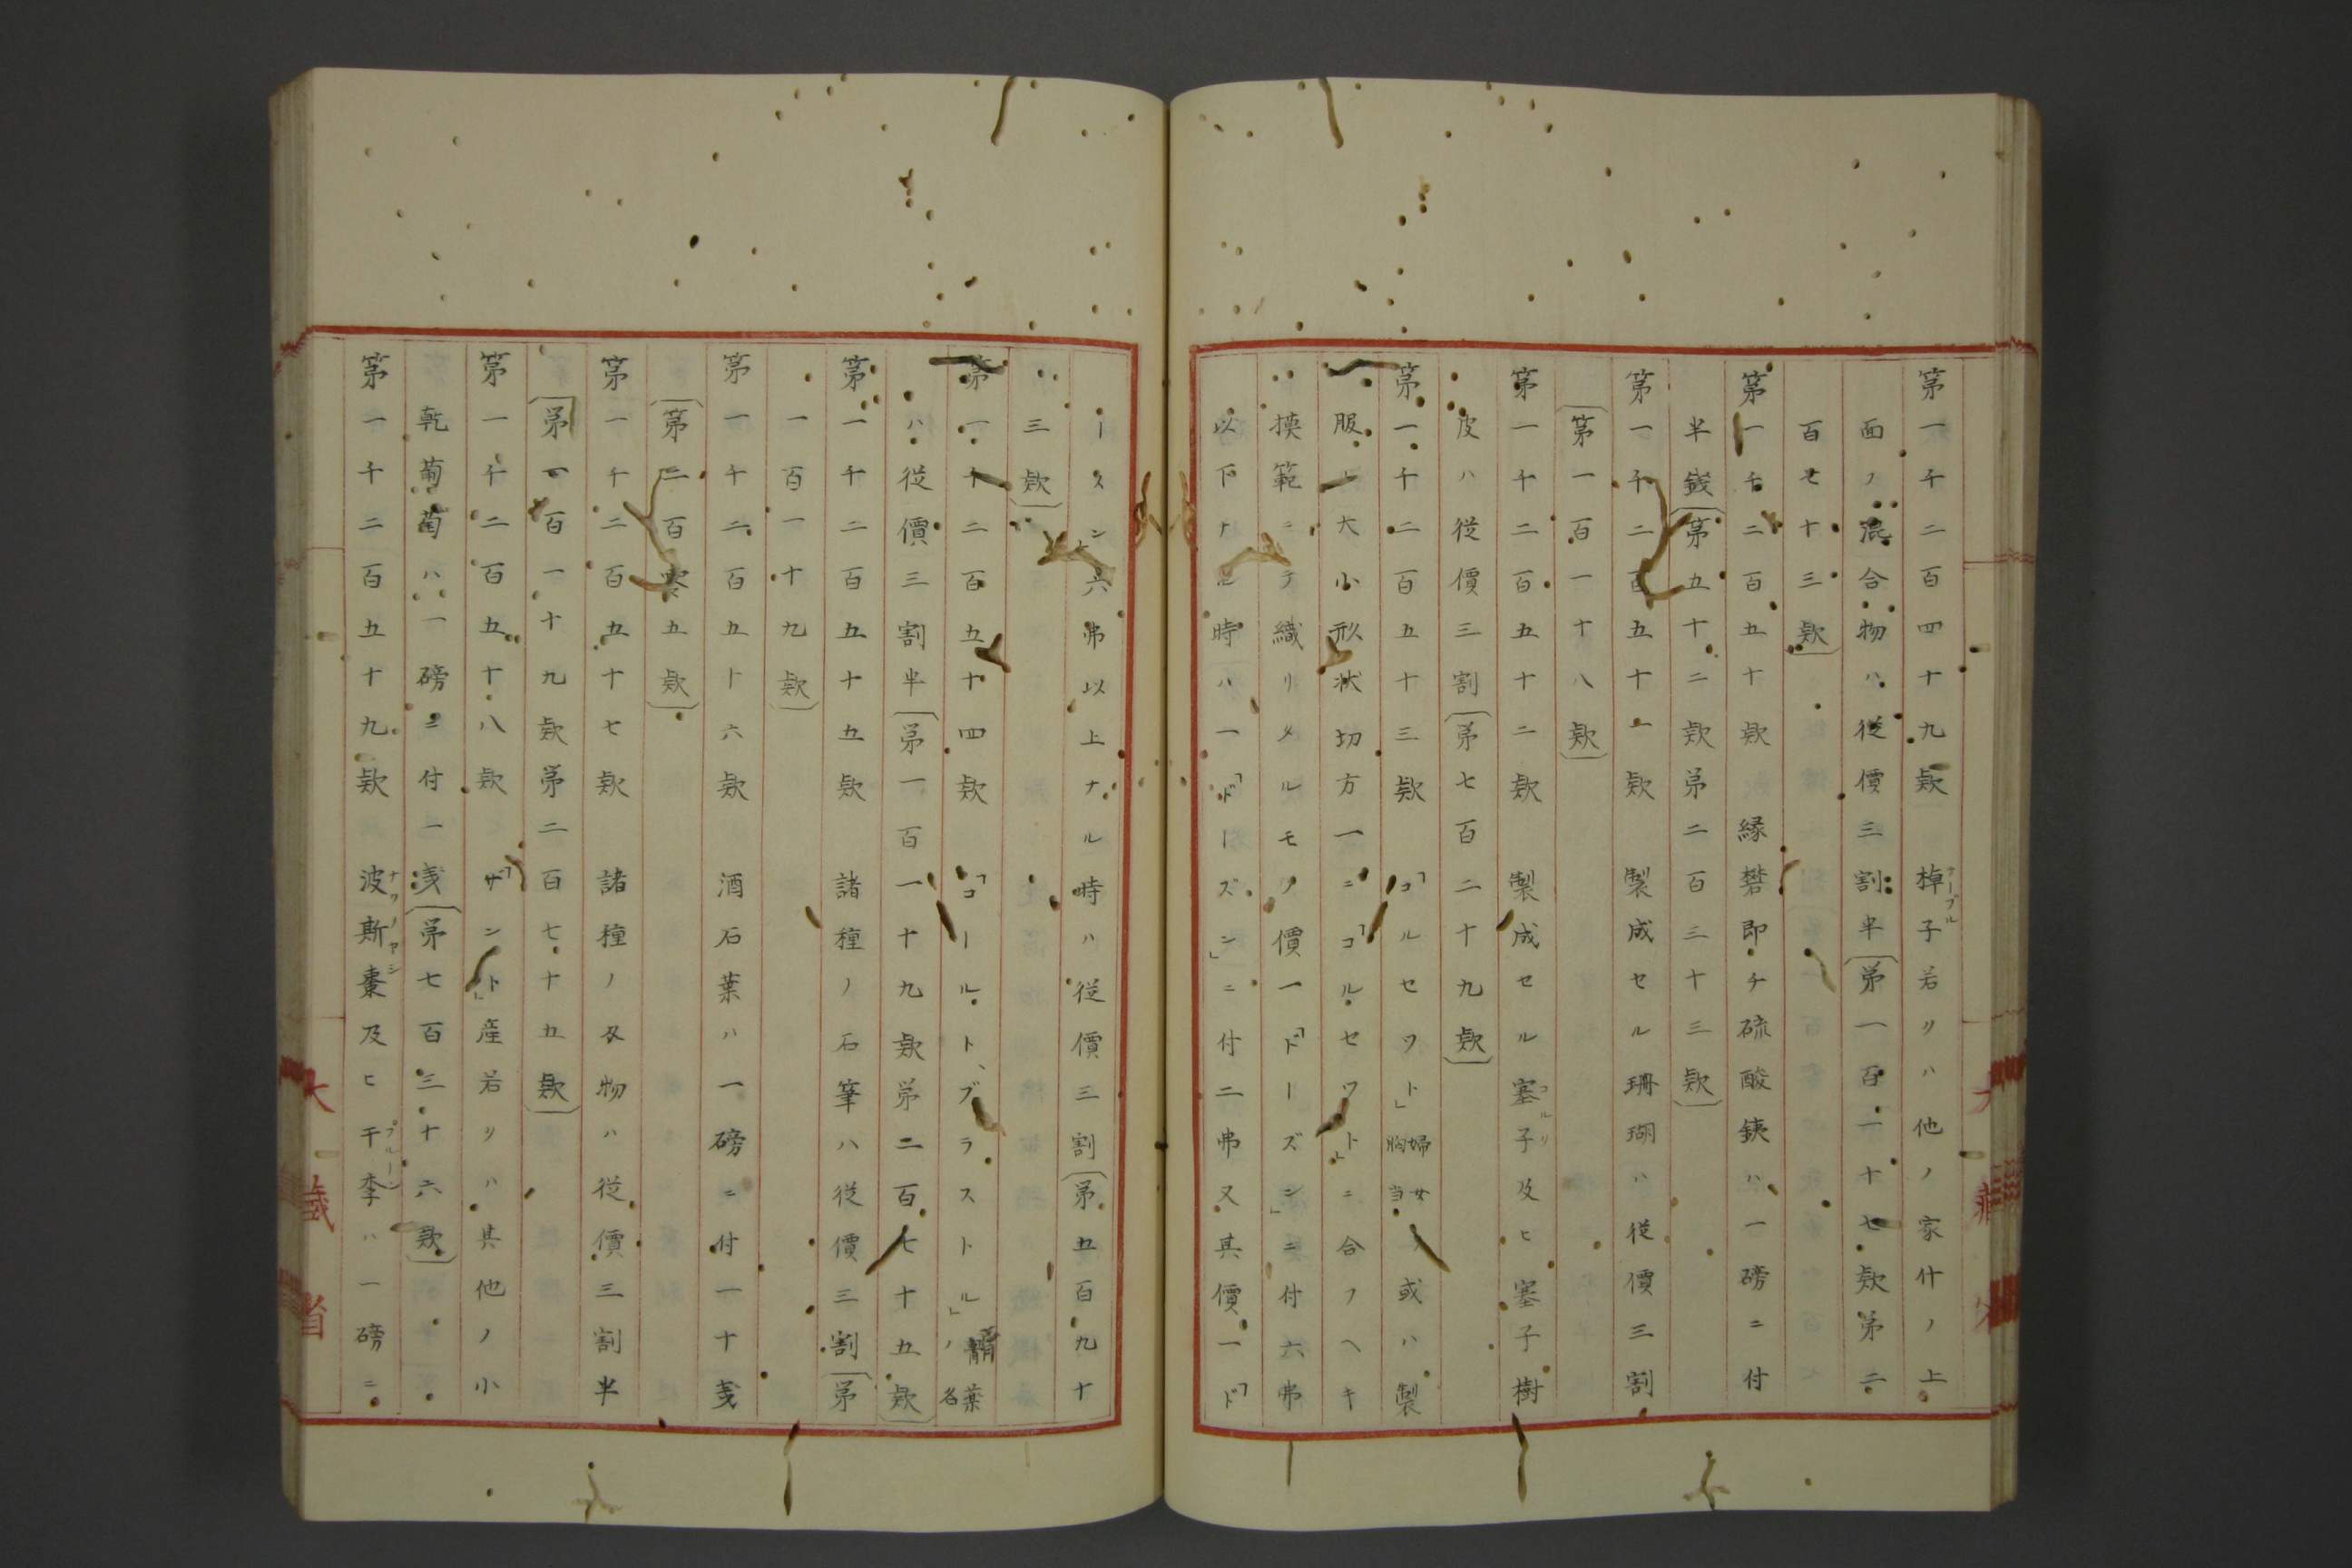 第一千二百四十九款 棹子若リハ他ノ家什ノ上
テーブル
面ノ混合物ハ從價三割半(第一百一十七款第二
百七十三款)
第一千二百五十款 緑礬即チ硫酸鉄ハ一磅ニ付
半錢(第五十二款第二百三十三款)
第一千二百五十一款 製成セル珊瑚ハ從價三割
(第一百一十八款)
第一千二百五十二款 製成セル塞子及ヒ塞子樹
コルク
皮ハ從價三割(第七百二十九款)
第一千二百五十三款 「コルセツト」婦女胸当 或ハ製
服ノ大小形狀切方一ニ「コルセツト」ニ合フヘキ
摸範ニテ織リタルモノ價一「ドーズン」ニ付六弗
以下ナル時ハ一「ドーズン」ニ付二弗又其價一「ド
ースン」六弗以上ナル時ハ從價三割(第五百九十
三款)
第一千二百五十四款 「コールト、ブラストル」ノ葉名
ハ從價三割半(第一百一十九款第二百七十五款)
第一千二百五十五款 諸種ノ石筆ハ從價三割(第
一百一十九款)
第一千二百五十六款 酒石葉ハ一磅ニ付一十戔
(第二百零五款)
第一千二百五十七款 諸種ノ衣物ハ從價三割半
(第一百一十九款第二百七十五款)
第一千二百五十八款 「ザント」産若リハ其他ノ小
乾葡萄ハ一磅ニ付一戔(第七百三十六款)
第一千二百五十九款 波斯棗及ヒ干李ハ一磅ニ
ナツノヤシ
プルーン
大藏省